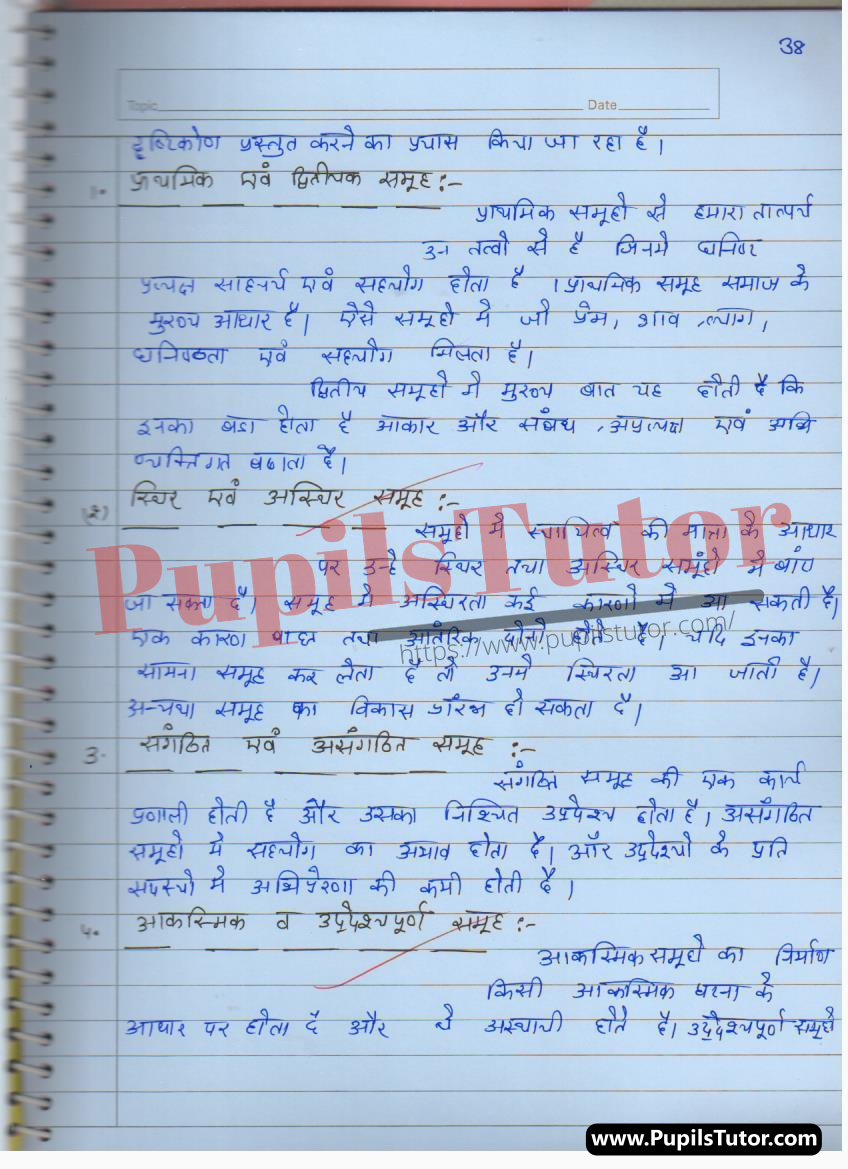 38
Topic Date
दृष्टिकोण प्रस्तुत करने का प्रयास किया जा रहा है।
1. प्राथमिक एवं द्वितीयक समूह :-
प्राथमिक समूहो से हमारा तात्पर्य
उन तत्वो से है जिनमे घनिष्ट
प्रत्यक्ष साहचर्य एवं सहयोग होता है । प्राथमिक समूह समाज के
मुख्य आधार है। ऐसे समूहो मे जो प्रेम, भाव, त्याग,
घनिष्ठता एवं सहयोग मिलता है।
द्वितीय समूहो मे मुख्य बात यह होती है कि
इनका बडा होता है आकार और संबंध , अप्रत्यक्ष एवं
व्यक्तिगत बढाता है।
(2) स्थिर एवं अस्थिर समूह :-
समूहो मे स्थायित्व की मात्रा के आधार
पर उन्हे स्थिर तथा अस्थिर समूहो मे बांट
जा सकता है। समूह मे अस्थिरता कई कारणो मे आ सकती है।
एक कारण बाह्य तथा आंतरिक दोनो होते है। यदि इनका
सामना समूह कर लेता है तो उनमे स्थिरता आ जाती है।
अन्यथा समूह का विकास प्रारंभ हो सकता है।
3. संगठित एवं असंगठित समूह :-
संगठित समूह की एक कार्य
प्रणाली होती है और उसका निश्चित उद्देश्य होता है। असंगठित
समूहो मे सहयोग का अभाव होता है। और उद्देश्यो के प्रति
सदस्यो मे अभिप्रेरणा की कमी होती है।
4. आकस्मिक व उद्देश्यपूर्ण समूह :-
आकस्मिक समूहो का निर्माण
किसी आकस्मिक घटना के
आधार पर होता है और ये अस्थायी होते है। उद्देश्यपूर्ण समूहो
PupilsTutor
https://www.pupilstutor.com/
www.PupilsTutor.com